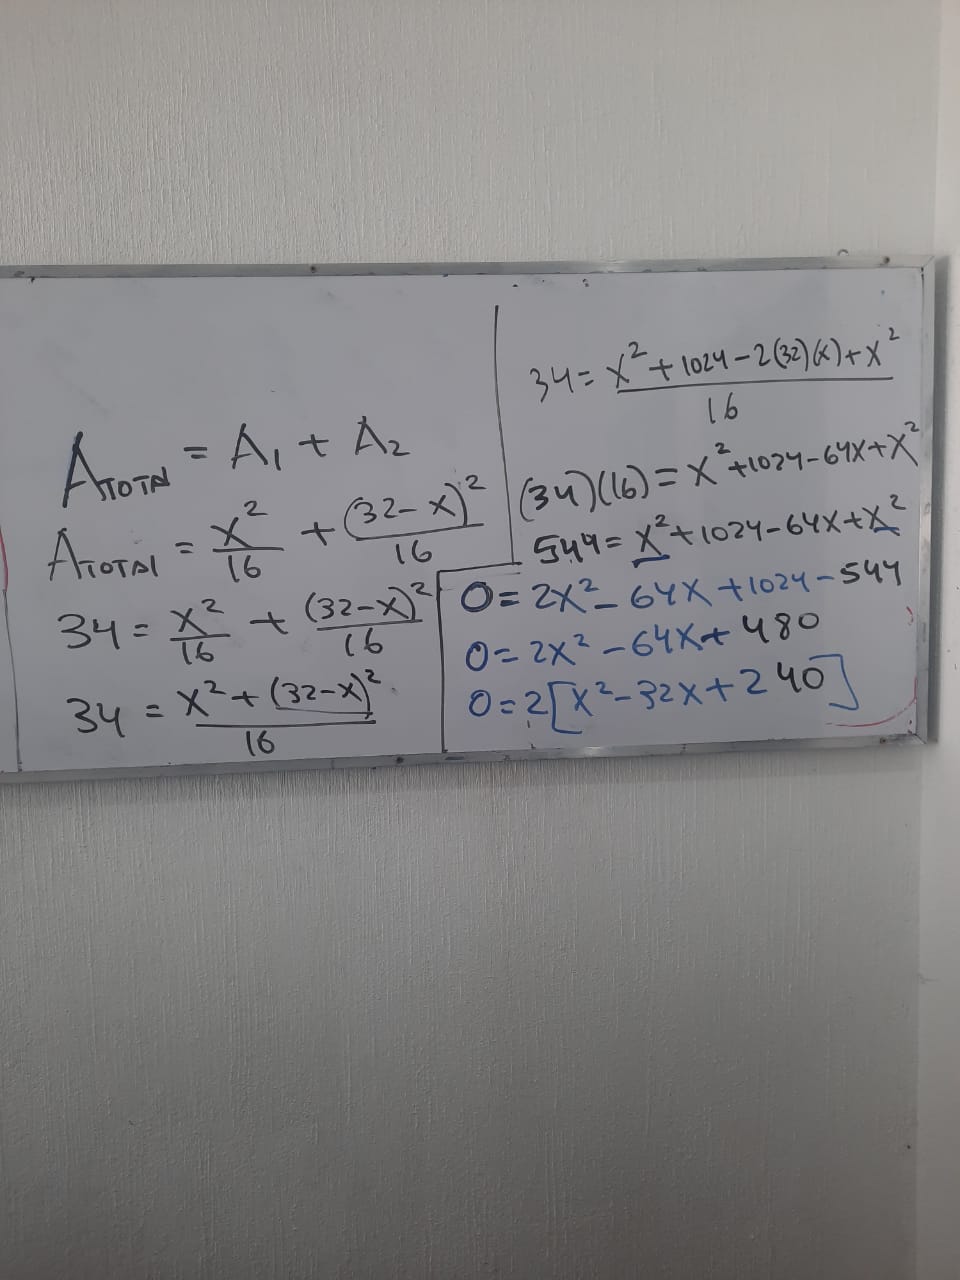 A_TOTAL = A₁ + A₂
A_TOTAL = x²/16 + (32-x)²/16
34 = x²/16 + (32-x)²/16
34 = x² + (32-x)² / 16
34 = x² + 1024 - 2(32)(x) + x² / 16
(34)(16) = x² + 1024 - 64x + x²
544 = x² + 1024 - 64x + x²
0 = 2x² - 64x + 1024 - 544
0 = 2x² - 64x + 480
0 = 2[x² - 32x + 240]